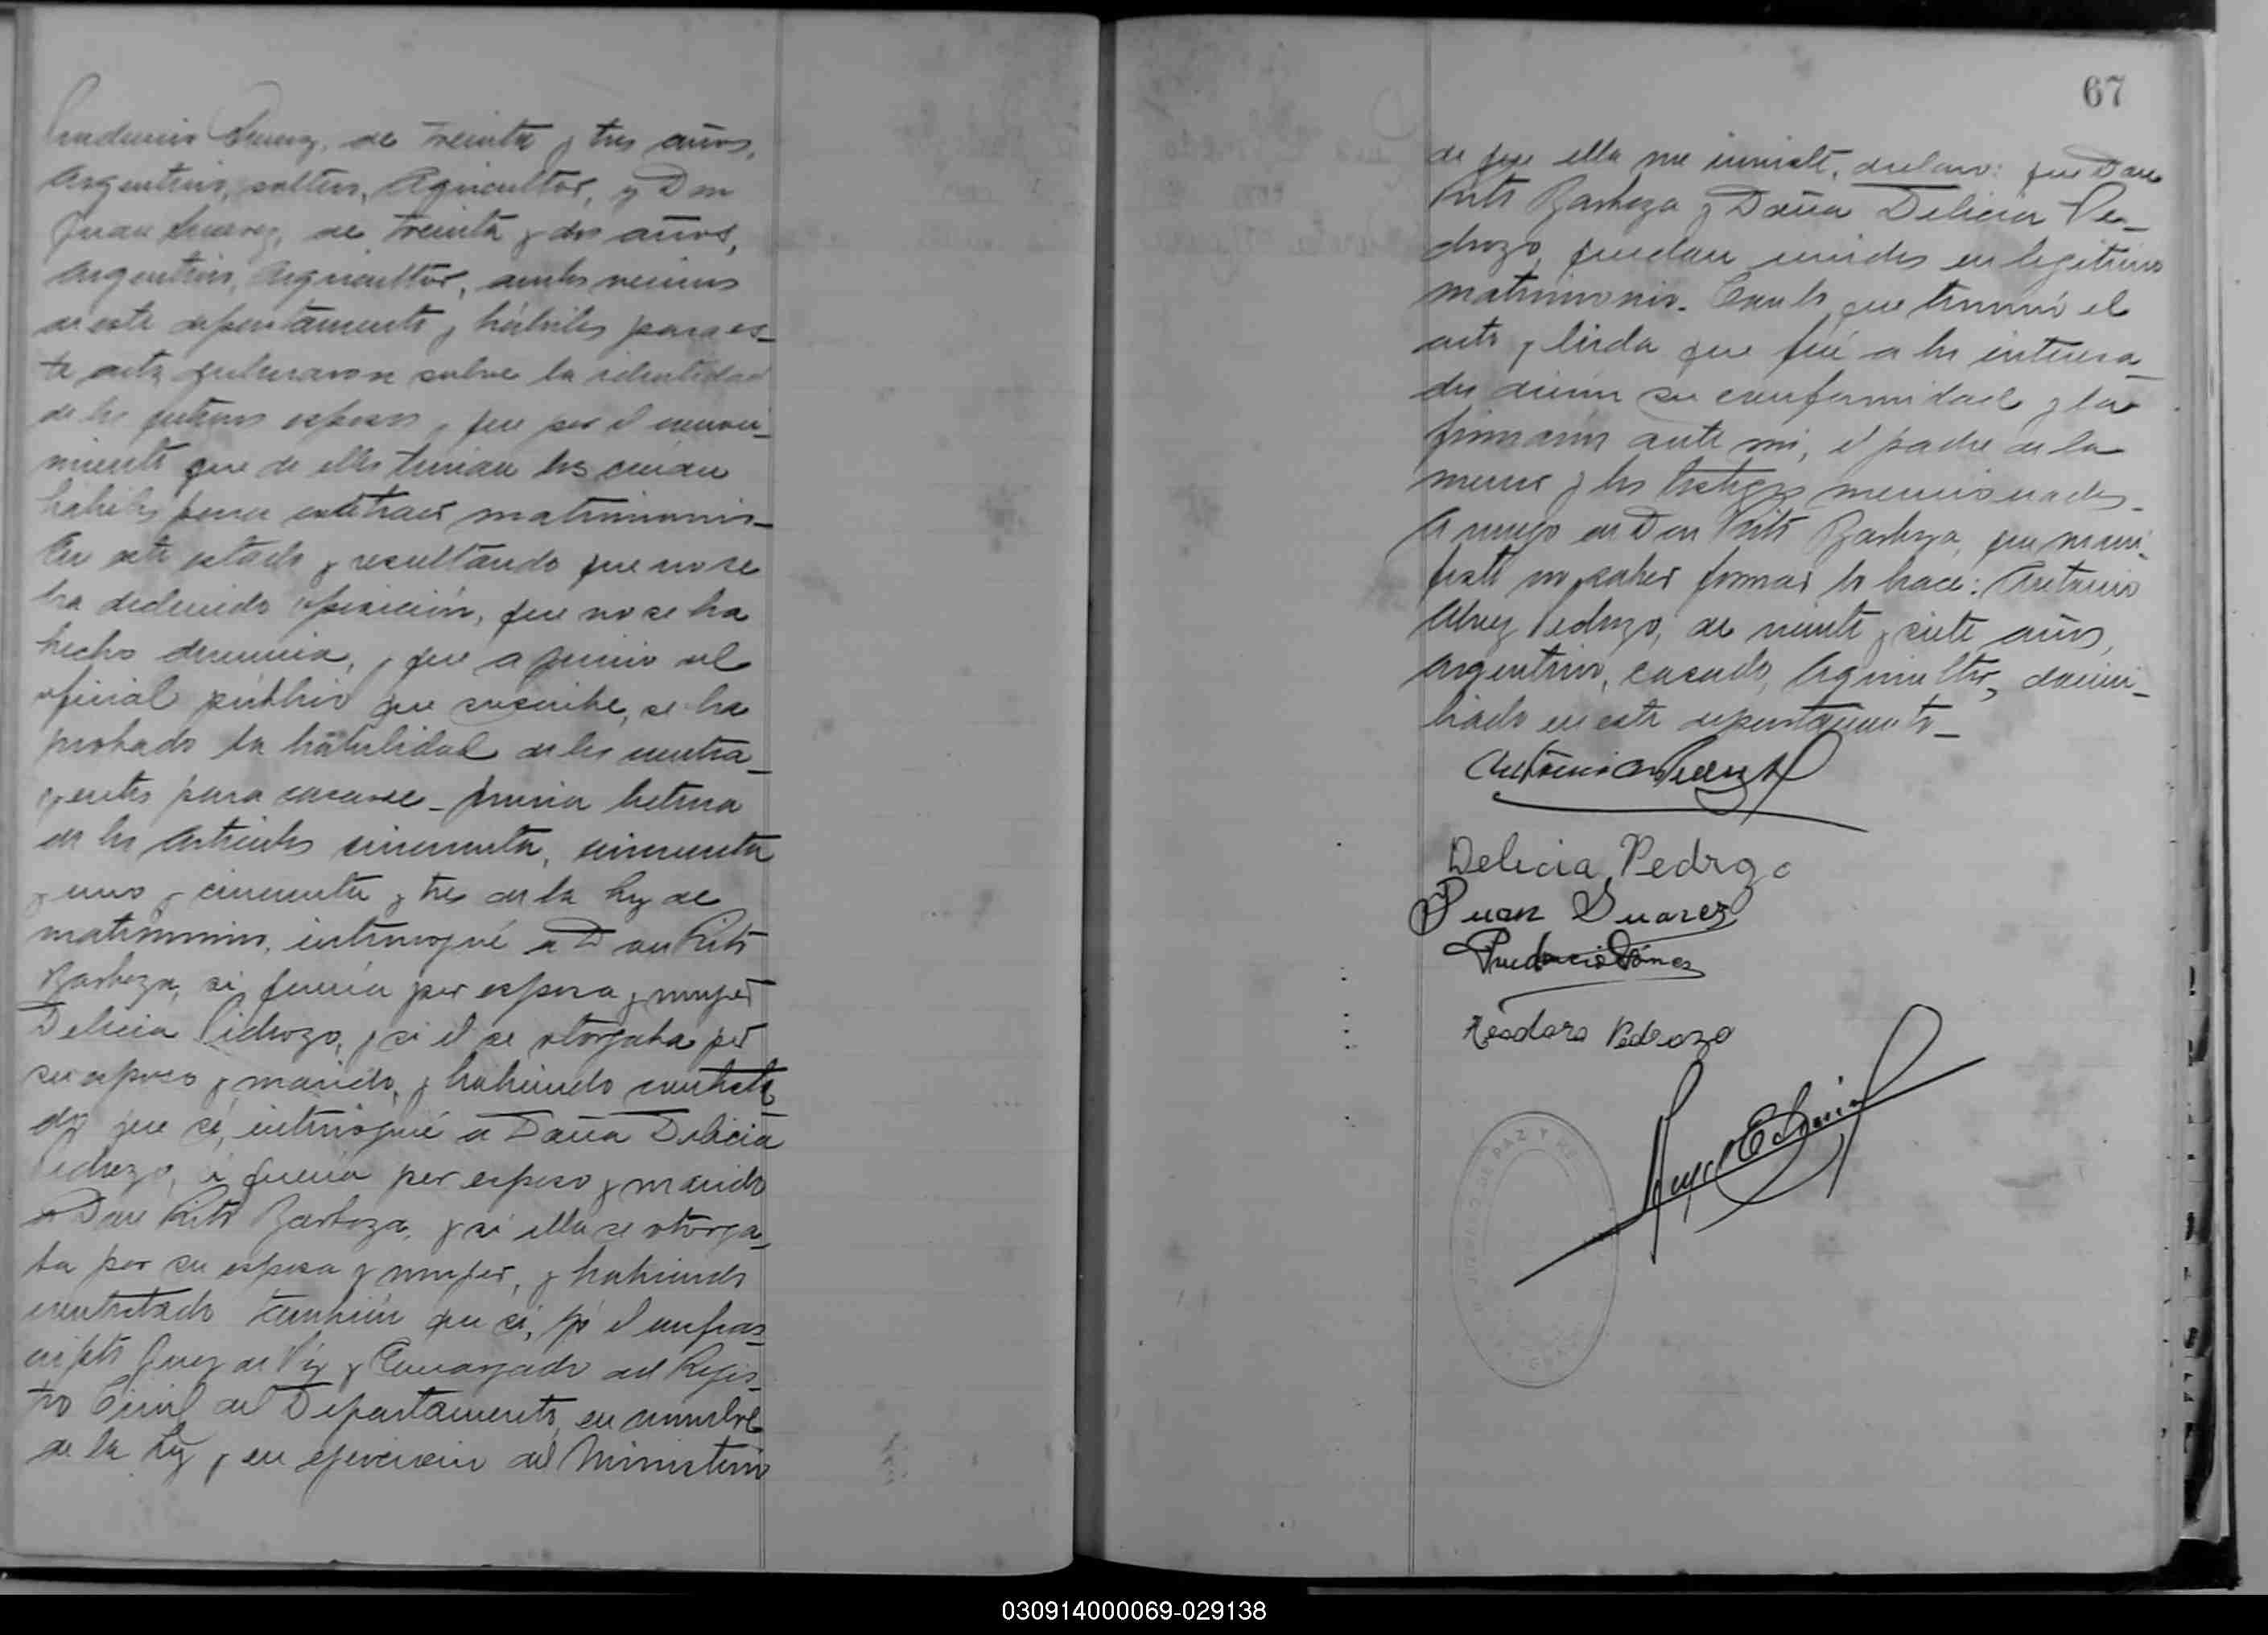 Prudencio Gomez, de treinta y tres años,
Argentino, soltero, Agricultor, y Don
Juan Suarez, de treinta y dos años,
Argentino, Agricultor, ambos vecinos
de este departamento y hábiles para es-
te acto, sobre la identidad
de los futuros esposos y que por el conoci-
miento que de ellos tenian los creian
habiles para contraer matrimonio-
En este estado y resultando que no se
ha deducido oposición, que no se ha
hecho denuncia, y que a juicio del
oficial público que suscribe, se ha
probado la habilidad de los contra-
yentes para casarse - previa lectura
de los articulos cincuenta, cincuenta
y uno y cincuenta y tres de la ley de
matrimonio, interrogué a Don Rito
Barboza, si queria por esposa y mujer
Delicia Pedrozo, y si el se otorgaba por
su esposo y marido, y habiendo contesta-
do que si, interrogué a Doña Delicia
Pedrozo, si queria por esposo y marido
a Don Rito Barboza, y si ella se otorga-
ba por su esposa y mujer, y habiendo
contestado tambien que si, yo el infras-
cripto Juez de Paz y Encargado del Regis-
tro Civil del Departamento, en nombre
de la Ley y en ejercicio del Ministerio
67
de que ella me inviste, declaro: que Don
Rito Barboza y Doña Delicia Pe-
drozo, quedan unidos en legitimo
matrimonio. Con lo que terminó el
acto y leida que fué a los interesa-
dos dieron su conformidad y la
firmaron ante mi, el padre de la
menor y los testigos mencionados-
A ruego de Don Rito Barboza, que mani-
festó no saber firmar lo hace: Antonio
Pedrozo, de veinte y siete años,
Argentino, casado, Agricultor, domici-
liado en este departamento-
Antonio
Delicia Pedrozo
Juan Suarez
Prudencio Gómez
Teodoro Pedrozo
DE PAZ Y
030914000069-029138